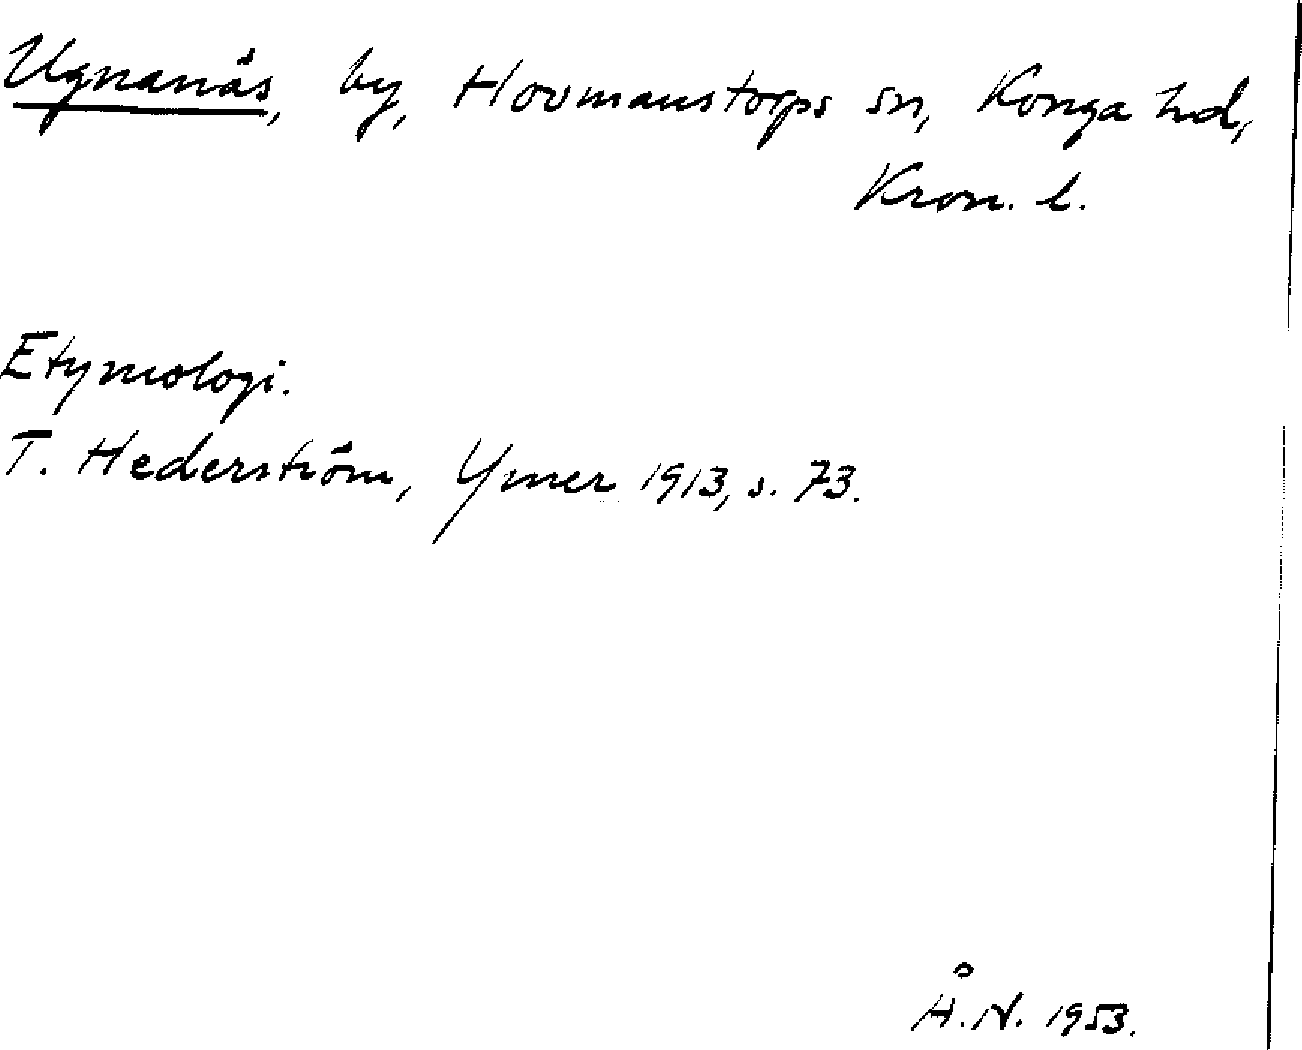 Ugnanäs, by, Hovmanstorps sn, Konga hd,
Kron. l.
Etymologi.
T. Hederström, Ymer 1913, s. 73.
Å.N. 1953.